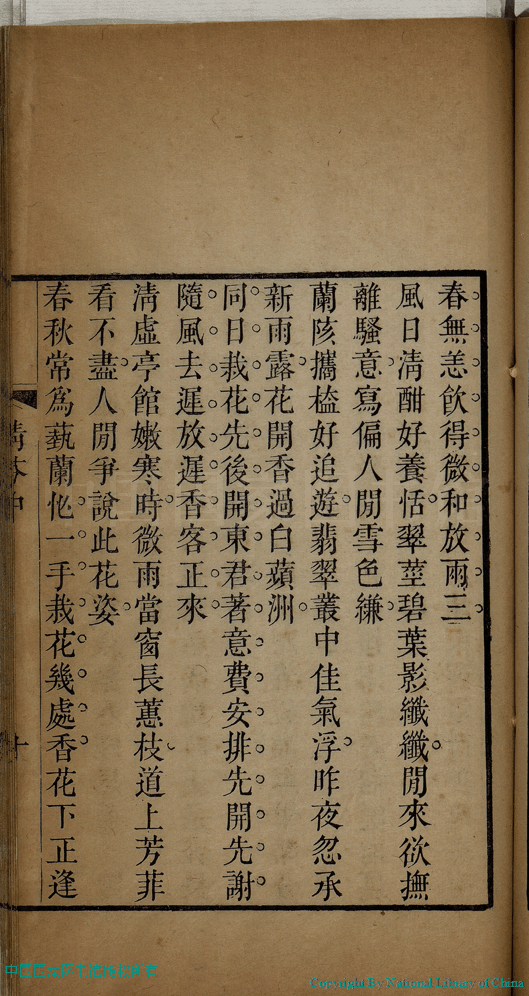 春無恙飲得微和放兩三
風日清酣好養恬翠莖碧葉影纖纖閒來欲撫
離騷意寫徧人閒雪色縑
蘭陔攜榼好追遊翡翠叢中佳氣浮昨夜忽承
新雨露花開香過白蘋洲
同日栽花先後開東君著意費安排先開先謝
隨風去遲放遲香客正來
淸虛亭館嫩寒時微雨當窗長蕙枝道上芳菲
看不盡人閒爭說此花姿
春秋常爲蓺蘭忙一手栽花幾處香花下正逢
十
Copyright By National Library of China